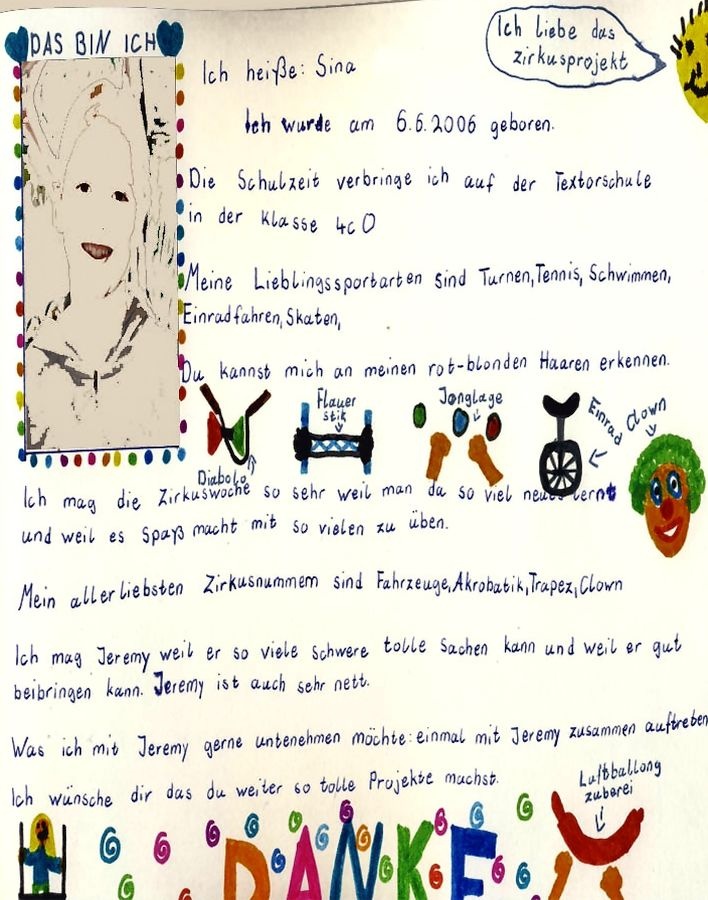 DAS BIN ICH
Ich liebe das
zirkusprojekt
Ich heiße: Sina
Ich wurde am 6.6.2006 geboren.
Die Schulzeit verbringe ich auf der Textorschule
in der Klasse 4c O
Meine Lieblingssportarten sind Turnen, Tennis, Schwimmen,
Einradfahren, Skaten,
Du kannst mich an meinen rot-blonden Haaren erkennen.
Diabolo
Flauer
stik
Jonglage
Einrad
Clown
Ich mag die Zirkuswoche so sehr weil man da so viel neues lernt
und weil es Spaß macht mit so vielen zu üben.
Mein allerliebsten Zirkusnummern sind Fahrzeuge, Akrobatik, Trapez, Clown
Ich mag Jeremy weil er so viele schwere tolle Sachen kann und weil er gut
beibringen kann. Jeremy ist auch sehr nett.
Was ich mit Jeremy gerne untenehmen möchte: einmal mit Jeremy zusammen auftreten
Ich wünsche dir das du weiter so tolle Projekte machst.
Luftballong
zuberei
DANKE